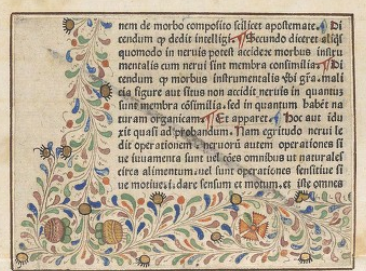 nem de morbo composito scilicet apostemate. Di
cendum ꝙ dedit intelligi. Secundo diceret aliqs
quomodo in neruis potest accidere morbus instru
mentalis cum nerui sint membra consimilia. Di
cendum ꝙ morbus instrumentalis vbi gra. mali
cia figure aut situs non accidit neruis in quantus
sunt membra cōsimilia. sed in quantum habēt na
turam organicam. Et apparet. hoc aut idu
xit quasi ad probandum. Nam egritudo nerui le
dit operationem. neruorū autem operationes si
ue iuuamenta sunt uel cōes omnibus ut naturales
circa alimentum. uel sunt operationes sensitiue si
ue motiue. i. dare sensum et motum. et iste omnes